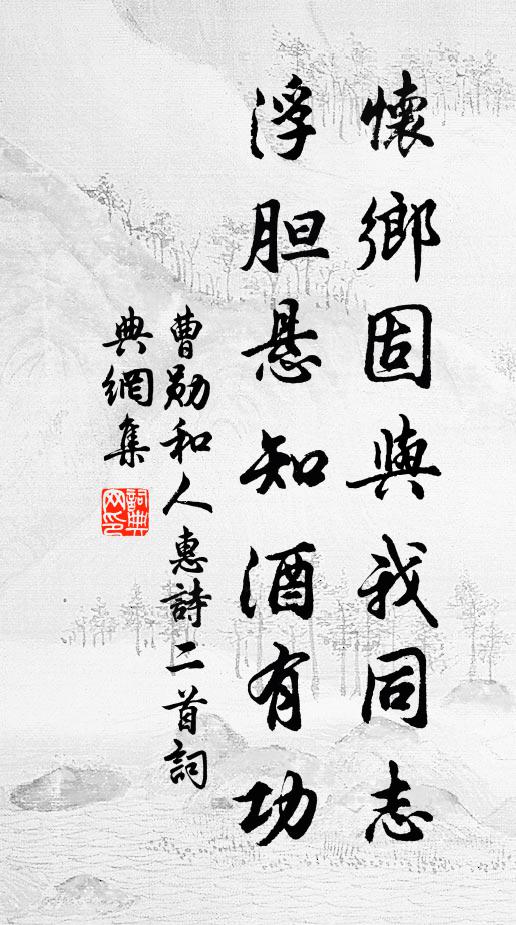 懷鄉固與我同志
浮胆悬知酒有功
曹勛和人惠詩二首詞
典網集
詞典网印